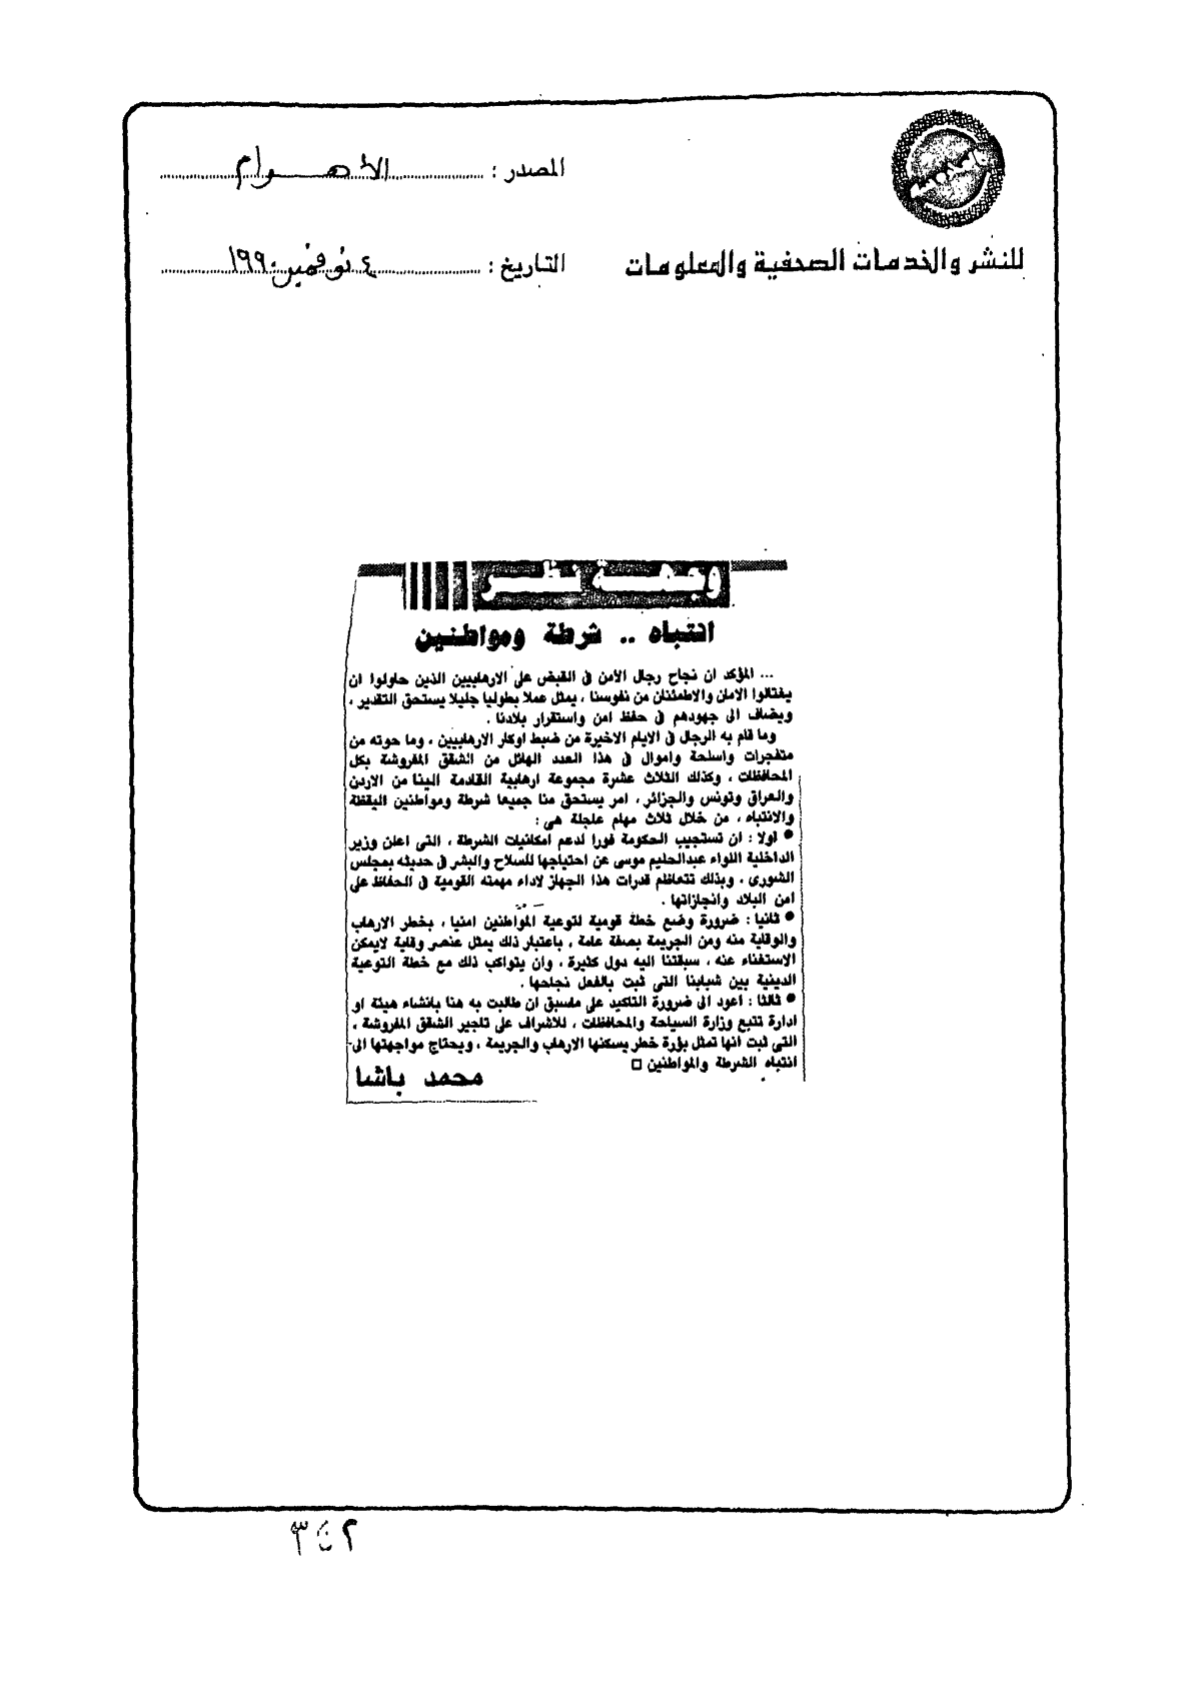 المصدر : الأهرام
للنشر والخدمات الصحفية والمعلومات
التاريخ : ٤ نوفمبر ١٩٩٠
وجهة نظر
انتباه .. شرطة ومواطنين
... المؤكد ان نجاح رجال الأمن فى القبض على الارهابيين الذين حاولوا ان
يغتالوا الامان والاطمئنان من نفوسنا ، يمثل عملا بطوليا جليلا يستحق التقدير ،
ويضاف الى جهودهم فى حفظ امن واستقرار بلادنا .
وما قام به الرجال فى الايام الاخيرة من ضبط اوكار الارهابيين ، وما حوته من
متفجرات واسلحة واموال فى هذا العدد الهائل من الشقق المفروشة بكل
المحافظات ، وكذلك الثلاث عشرة مجموعة ارهابية القادمة الينا من الاردن
والعراق وتونس والجزائر ، امر يستحق منا جميعا شرطة ومواطنين اليقظة
والانتباه ، من خلال ثلاث مهام عاجلة هى :
● اولا : ان تستجيب الحكومة فورا لدعم امكانيات الشرطة ، التى اعلن وزير
الداخلية اللواء عبدالحليم موسى عن احتياجها للسلاح والبشر فى حديثه بمجلس
الشورى ، وبذلك تتعاظم قدرات هذا الجهاز لاداء مهمته القومية فى الحفاظ على
امن البلاد وانجازاتها .
● ثانيا : ضرورة وضع خطة قومية لتوعية المواطنين امنيا ، بخطر الارهاب
والوقاية منه ومن الجريمة بصفة عامة ، باعتبار ذلك يمثل عنصر وقاية لايمكن
الاستغناء عنه ، سبقتنا اليه دول كثيرة ، وان يتواكب ذلك مع خطة التوعية
الدينية بين شبابنا التى ثبت بالفعل نجاحها .
● ثالثا : اعود الى ضرورة التاكيد على ماسبق ان طالبت به هنا بانشاء هيئة او
ادارة تتبع وزارة السياحة والمحافظات ، للاشراف على تاجير الشقق المفروشة ،
التى ثبت انها تمثل بؤرة خطر يسكنها الارهاب والجريمة ، ويحتاج مواجهتها الى
انتباه الشرطة والمواطنين □
محمد باشا
٣٤٢